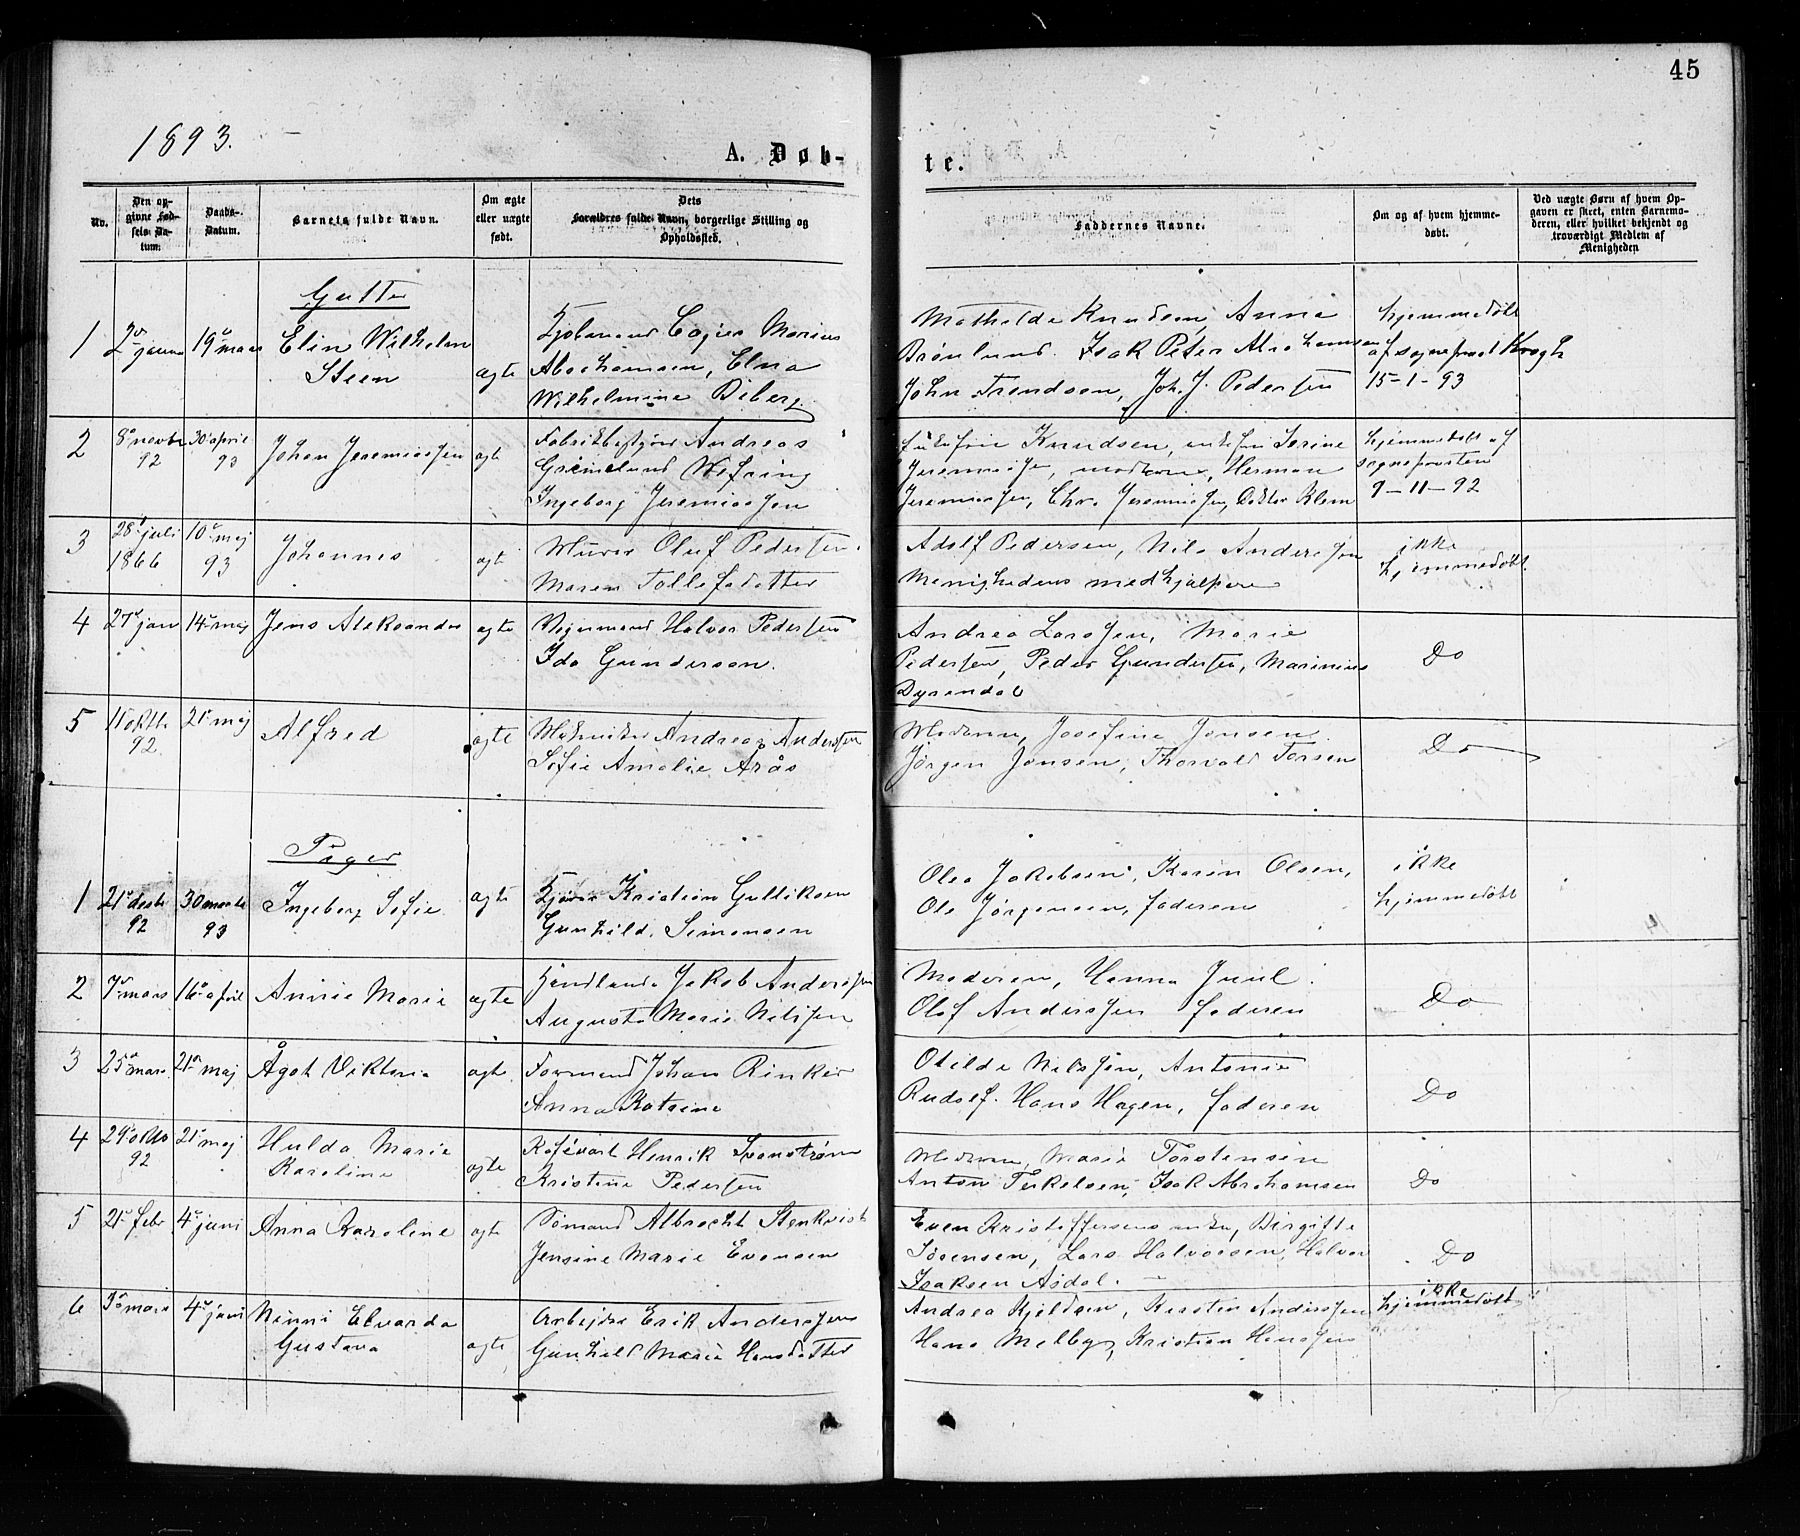 45
1893.
A. Døb-
te.
Nr.
Den op-
givne Fød-
sels Da-
tum.
Daabs-
Datum.
Barnets fulde Navn.
Om ægte
eller uægte
født.
Dets
Forældres fulde Navn, borgerlige Stilling og
Opholdssted.
Faddernes Navne.
Om og af hvem hjemme-
døbt.
Ved uægte Børn af hvem Op-
gaven er skeet, enten Barnemo-
deren, eller hvilket bekjendt og
troværdigt Medlem af
Menigheden
Gutter
1 19 mars Elin Wilhelm
Steen
ægte
Marius
Abrahamsen, Elna
Wilhelmine Biberg
Mathilde Knudsen, Anna
Brønlund. Isak Peter Abrahamsen
John Trendsen, Joh. J. Pedersen
hjemmedøbt
af sogneprest Krogh
15-1-93
2 8 novbr
92
30 april
93
Johan Jeremiassen
ægte
Fabrikbestyrer Andreas
Grimelund Wefring
Ingeborg Jeremiassen
Knudsen, enkefru Serine
Jeremiassen, moderen, Herman
Jeremiassen, Chr. Jeremiassen, Doktor Klem
hjemmedøbt af
sogneprosten
9-11-92
3 28 juli
1866
10 maj
93
Johannes
ægte
Murer Oluf Pedersen.
Maren Tollefsdatter
Adolf Pedersen, Nils Anderssen
Menighedens medhjælpere
ikke
hjemmedøbt
4 27 jan 14 maj Jens Aleksander ægte
Halvor Pedersen
Ida Gundersen.
Andrea Larssen, Marie
Pedersen, Peder Gundersen, Marinius
Dyrendal
Do
5 11 oktb
92
21 maj Alfred
ægte
Andreas Andersen
Sofie Amalie Arås
Moderen, Josefine Jensen
Jørgen Jensen, Thorvald Torsen
Do
Piger
1 21 desbr
92
30 marts
93
Ingeborg Sofie
ægte
Kristian Gulliksen
Gunhild Simonsen
Olea Jakobsen, Karen Olsen,
Ole Jørgensen, faderen
ikke
hjemmedøbt
2 7 mars 16 april Annie Marie ægte
Jakob Anderssen
Augusta Marie Nilssen
Moderen, Hanna Juul
Olaf Anderssen faderen
Do
3 25 mars 21 maj Ågot Viktoria ægte
Formand Johan Rinker
Anna Katrine
Otilde Nilssen, Antonie
Rudolf. Hans Hagen, faderen
Do
4 29 oktb
92
21 maj Hulda Marie
Karoline
ægte
Kafévært Henrik Svanstrøm
Kristine Pedersen
Moderen, Marie Torstensen
Anton Terkelsen, Isak Abrahamsen
Do
5 21 febr 4 juni Anna Karoline ægte
Sømand Albrecht Stenkvist
Jensine Marie Evensen
Even Kristoffersens enke, Birgitte
Sørensen, Lars Halvorsen, Halvor
Isaksen Asdal.
Do
6 3 mars 4 juni Ninni Elvarda
Gustava
ægte
Arbejder Erik Anderssen
Gunhild Marie Hansdatter
Andrea Kjeldsen, Kirsten Anderssen
Hans Melby, Kristian Hanssen
ikke
hjemmedøbt